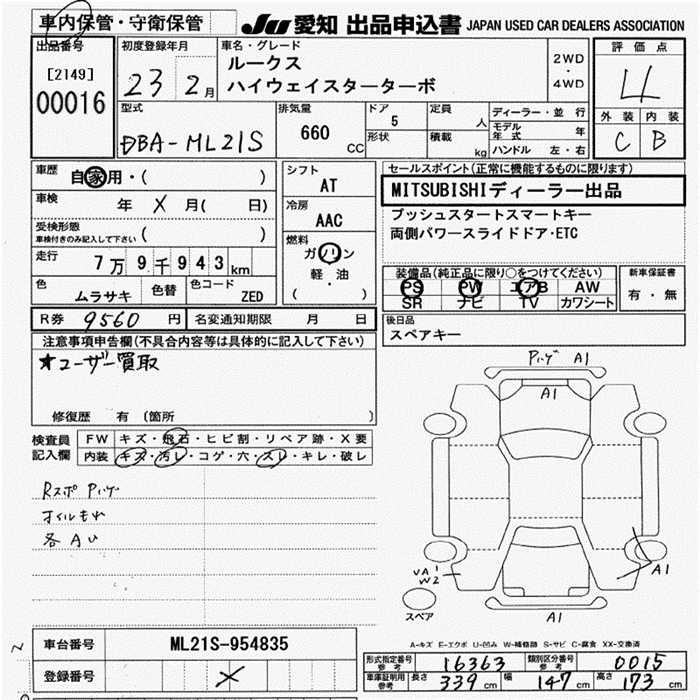 車内保管・守衛保管
JU 愛知 出品申込書 JAPAN USED CAR DEALERS ASSOCIATION
出品番号
[2149]
00016
初度登録年月
23 2月
車名・グレード
ルークス
ハイウェイスターターボ
2WD
・
4WD
評価点
4
外装 内装
C B
型式
DBA-ML21S
排気量
660 CC
ドア
5
形状
定員
人
積載
kg
ディーラー・並行
モデル年式 年
ハンドル 左・右
車歴
自家用・( )
車検
年 X 月( 日)
受検形態
車検付きのみ記入して下さい ( )
走行
7万9千943km
色
ムラサキ
色替
色コード
ZED
シフト
AT
冷房
AAC
燃料
ガソリン
軽・油
( )
セールスポイント(正常に機能するものに限ります)
MITSUBISHIディーラー出品
プッシュスタートスマートキー
両側パワースライドドア・ETC
装備品(純正品に限り○をつけてください)
PS PW エアB AW
SR ナビ TV カワシート
新車保証書
有・無
R券 9560 円
名変通知期限 月 日
後日品
スペアキー
注意事項申告欄(不具合内容等は具体的に記入して下さい)
★ユーザー買取
修復歴 有 (箇所 )
検査員
記入欄
FW キズ・飛石・ヒビ割・リペア跡・X要
内装 キズ・汚レ・コゲ・穴・スレ・キレ・破レ
Rスポ Pハゲ
オイルもれ
各AU
Pハゲ A1
A1
UA1
W2
A1
A1
スペア
A-キズ E-エクボ U-凹み W-補修跡 S-サビ C-腐食 XX-交換済
車台番号 ML21S-954835
登録番号 X
形式指定番号
参考
16363
類別区分番号
参考
0015
車庫証明用
参考
長さ 339 cm 幅 147 cm 高さ 173 cm